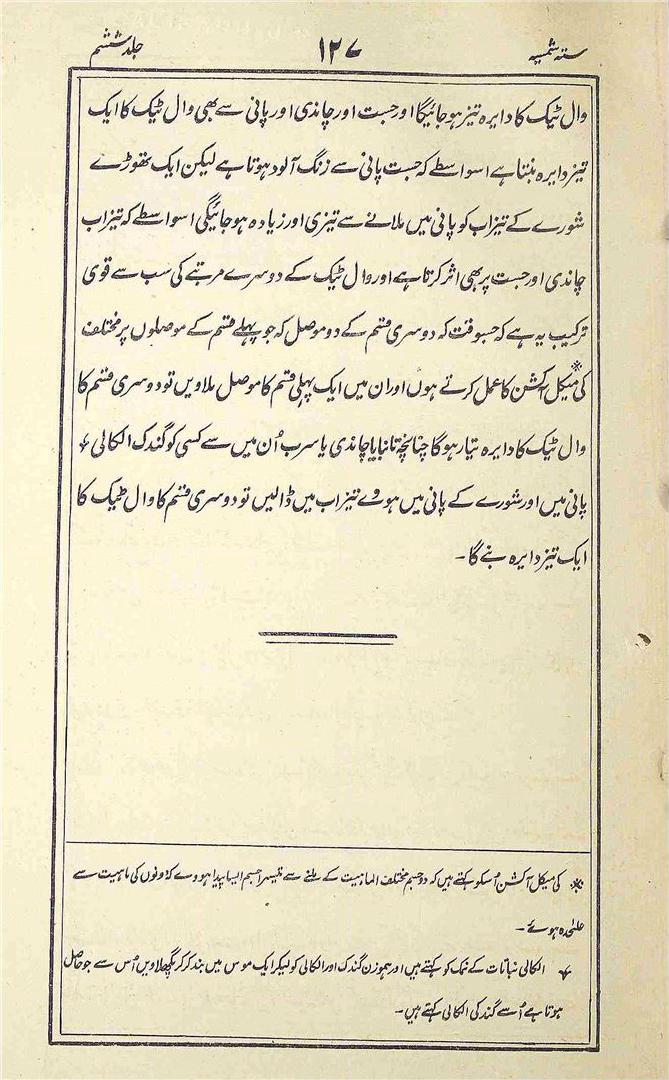 ستہ شمسیہ ۱۲۷ جلد ششم
وال ٹیک کا دایرہ تیز ہو جائیگا اور جست اور چاندی اور پانی سے بھی وال ٹیک کا ایک
تیز دایرہ بنتا ہے اسواسطے کہ جست پانی سے زنگ آلود ہوتا ہے لیکن ایک تھوڑے
شورے کے تیزاب کو پانی میں ملانے سے تیزی اور زیادہ ہو جائیگی اسواسطے کہ تیزاب
چاندی اور جست پر بھی اثر کرتا ہے اور وال ٹیک کے دوسرے مرتبے کی سب سے قوی
ترکیب یہ ہے کہ جسوقت کہ دوسری قسم کے دو موصل کہ جو پہلے قسم کے موصلوں پر مختلف
کی میکل آکشن※ کا عمل کرتے ہوں اور ان میں ایک پہلی قسم کا موصل ملاویں تو دوسری قسم کا
وال ٹیک کا دایرہ تیار ہوگا چنانچہ تانبا یا چاندی یا سرب اُن میں سے کسی کو گندک الکالی
پانی میں اور شورے کے پانی میں ہوے تیزاب میں ڈالیں تو دوسری قسم کا وال ٹیک کا
ایک تیز دایرہ بنے گا ۔
※ کی میکل آکشن اُسکو کہتے ہیں کہ دو جسم مختلف الماہیت کے ملنے سے تیسرا جسم ایسا پیدا ہووے کہ دونوں کی ماہیت سے
علٰحدہ ہوئے ۔
الکالی نباتات کے نمک کو کہتے ہیں اور ہموزن گندک اور الکالی کو لیکر ایک موس میں بند کر کر پگھلاویں اُس سے جو حاصل
ہوتا ہے اُسے گندکی الکالی کہتے ہیں ۔